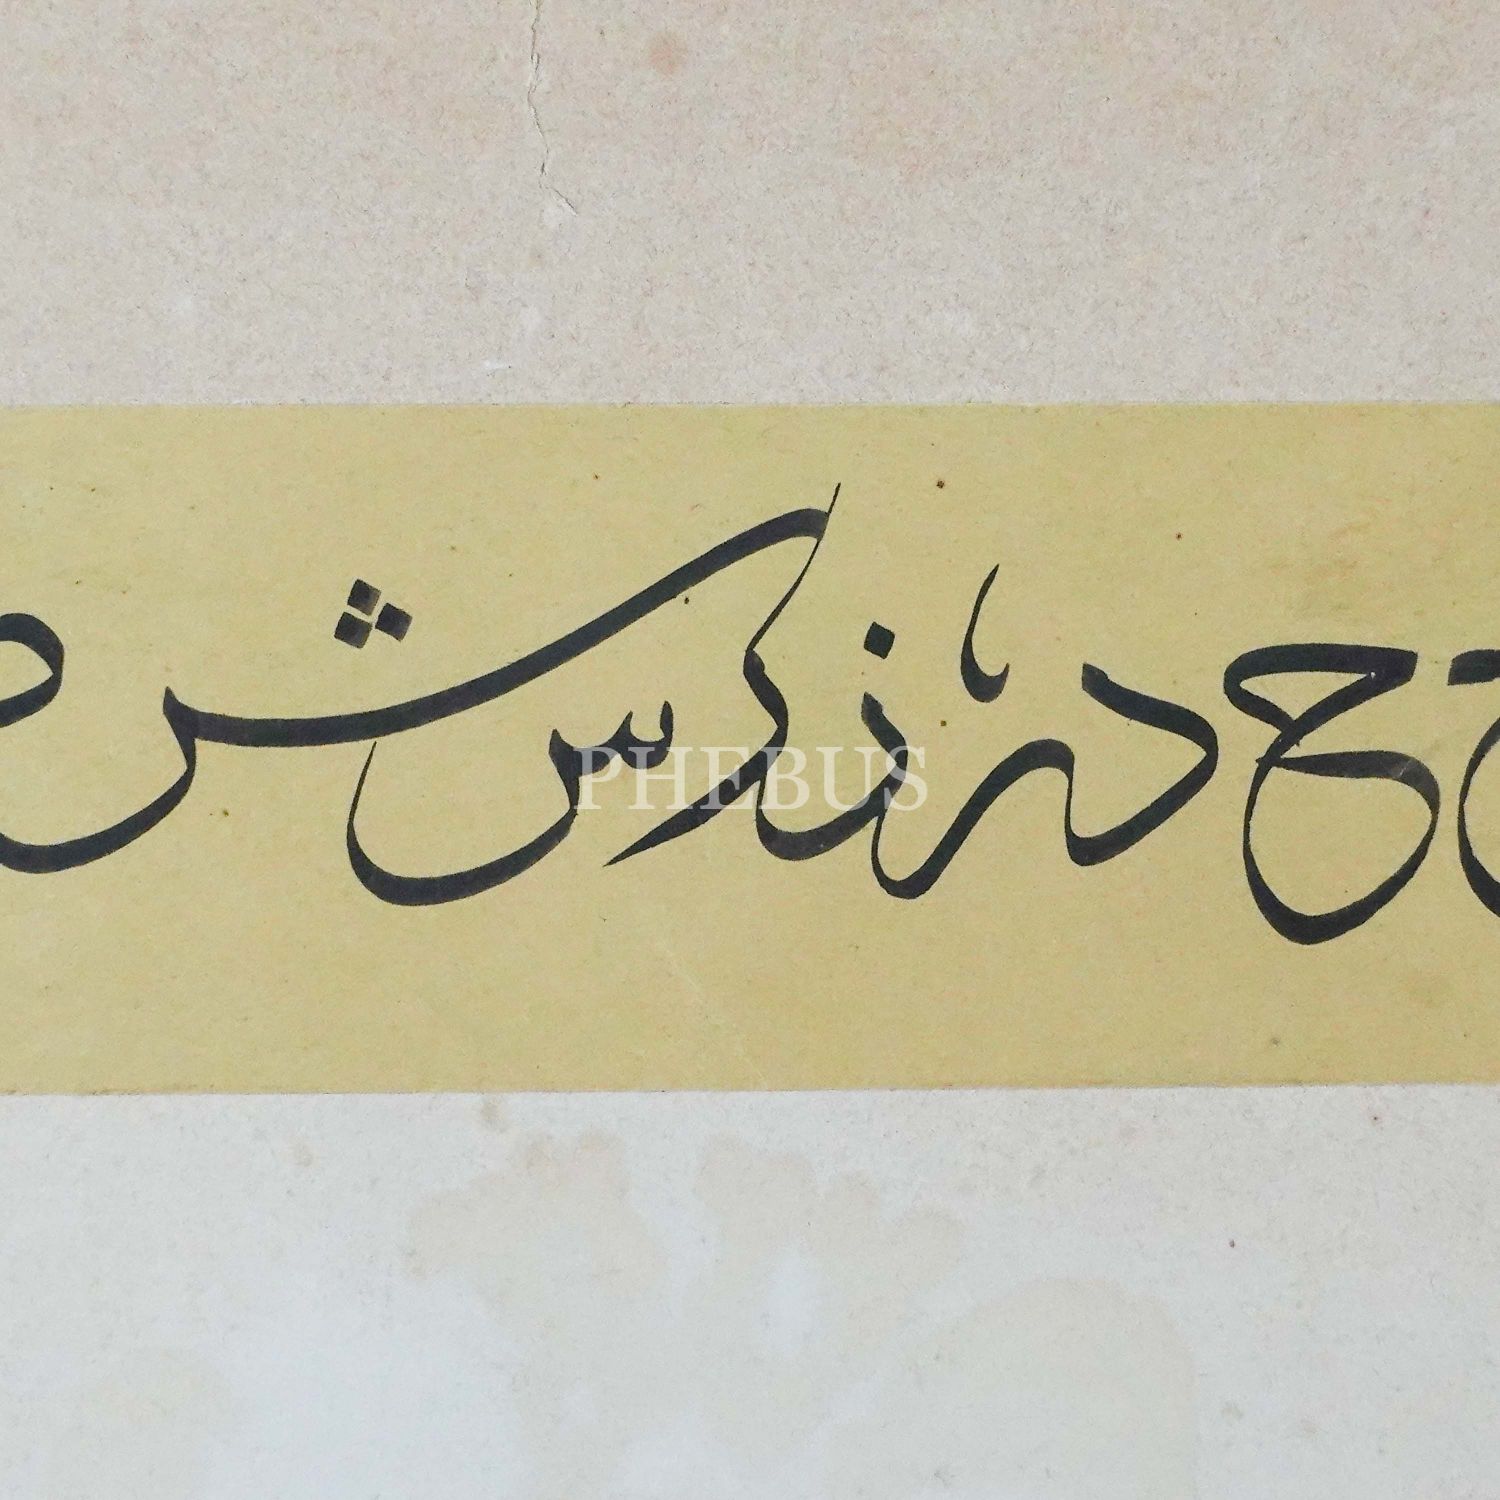 ح د ر ز س س ش
PHEBUS